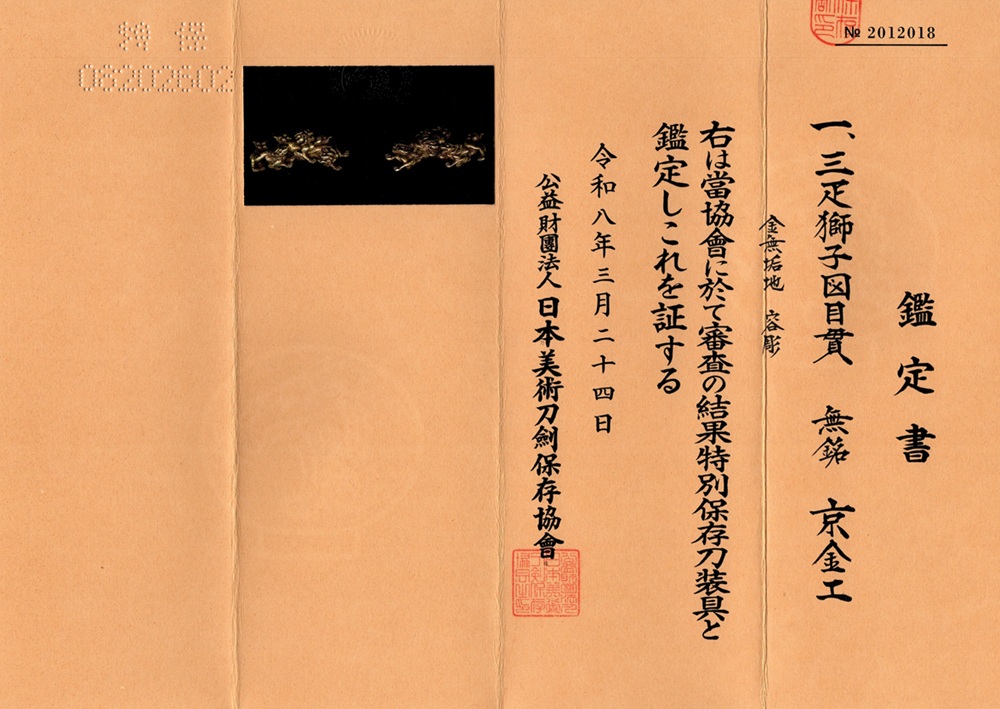 № 2012018
鑑定書
一、三疋獅子図目貫 無銘 京金工
金無垢地 容彫
右は當協會に於て審査の結果特別保存刀装具と
鑑定しこれを証する
令和八年三月二十四日
公益財團法人 日本美術刀劍保存協會
特保
06202602